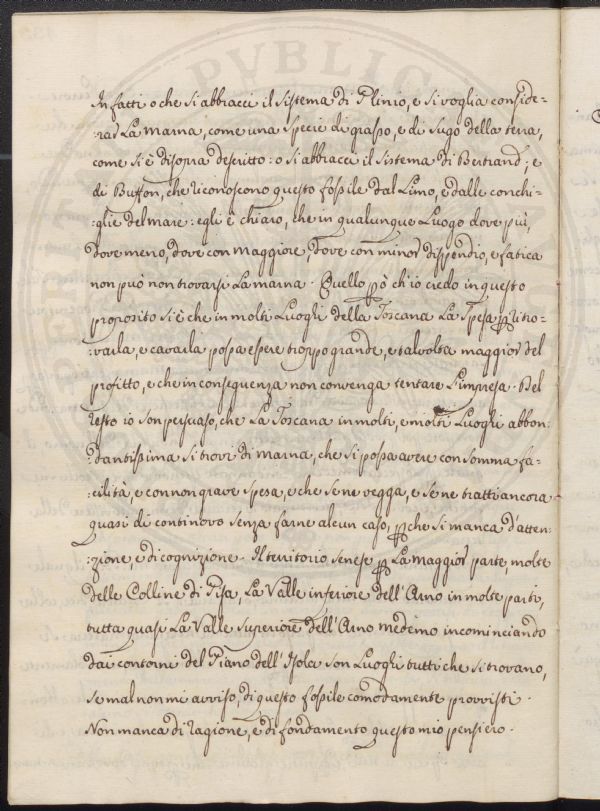 In fatti o che si abbracci il sistema di Plinio, e si voglia conside=
:rar La Marna, come una specie di graspo, e di sugo della terra,
come si è di sopra descritto: o si abbracci il sistema di Bertrand; e
di Buffon, che riconoscono questo fossile dal Limo, e dalle conchi=
:glie del mare: egli è chiaro, che in qualunque Luogo dove più,
dove meno, dove con maggiore, dove con minor dispendio, e fatica
non può non trovarsi La marna. Quello pò ch'io credo in questo
proposito si è che in molti Luoghi della Toscana La Spesa p ritro=
:varla, e cavarla possa essere troppo grande, e talvolta maggior del
profitto, e che in conseguenza non convenga tentare L'impresa. Del
resto io son persuaso, che La Toscana in molti, e molti Luoghi abbon=
:dantissima si trovi di marna, che si possa avere con somma fa=
:cilità, e con non grave spesa, e che se ne vegga, e se ne tratti ancora
quasi di continovo senza farne alcun caso, pche si manca d'atten=
:zione, e di cognizione. Il territorio senese p La maggior parte, molte
delle Colline di Pisa, La Valle inferiore dell'Arno in molte parti,
tutta quasi La Valle superiore dell'Arno medemo incominciando
dai contorni del Piano dell'Isola son Luoghi tutti che si trovano,
se mal non mi avviso, di questo fossile comodamente provvisti.
Non manca di ragione, e di fondamento questo mio pensiero.